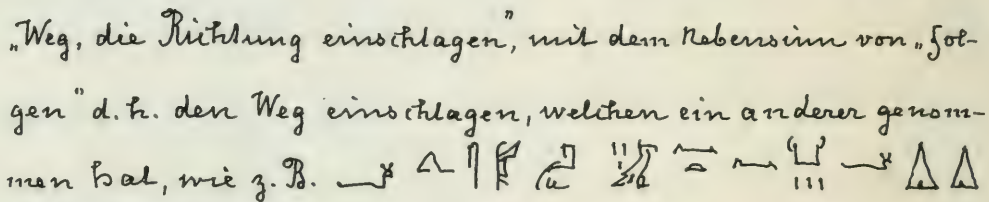 „Weg, die Richtung einschlagen", mit dem Nebensinn von „fol-
gen" d. h. den Weg einschlagen, welchen ein anderer genom-
men hat, wie z. B.